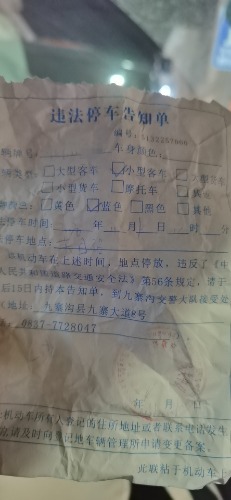 违法停车告知单
编号:5132257000
号牌号: 车身颜色:
类型: 大型客车 小型客车 大型货车
小型货车 摩托车 其
黄色 蓝色 黑色 其他
停车时间: 年 月 日 时 分
停车地点:
机动车在上述时间、地点停放，违反了《中
人民共和国道路交通安全法》第56条规定，请于
后15日内持本告知单，到九寨沟交警大队接受
地址: 九寨沟县九寨大道8号
0837-7728047
年 月 日
机动车所有人登记的住所地址或者联系电话发生
请及时向登记地车辆管理所申请变更备案。
此联粘于机动车上